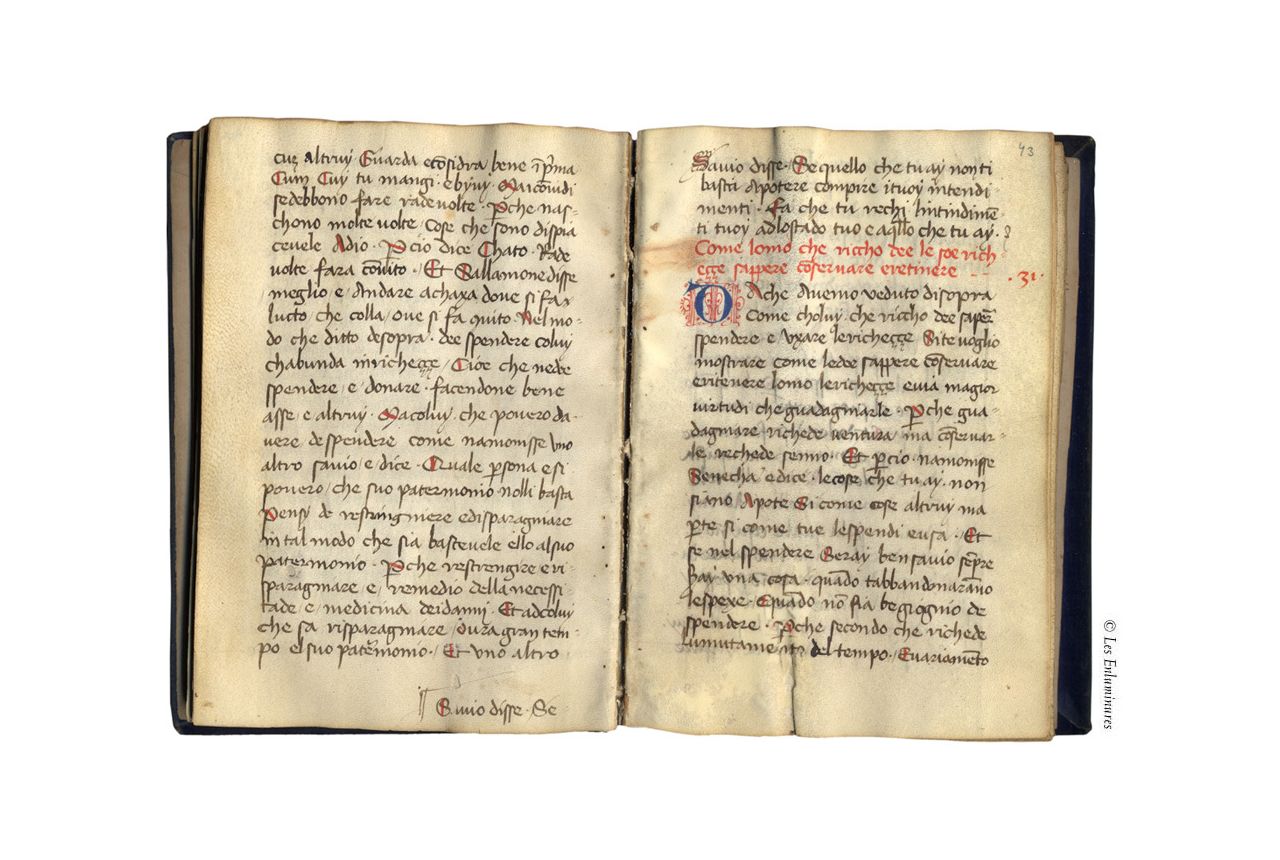 cuz altruy Guarda ecōsidra bene ī p̄ma
Cum Cuy tu mangi · e byuy · Mai cōuidi
se debbono fare rade volte · P̱che nas-
chono molte volte / Cose che sono dispia
ceuele Adio · P̱cio dice Chato · Rade
volte fara cōuito · Et Sallamone disse
meglio e / Andare achaxa doue si fa x
lucto / che colla / Oue si fa quito · Nel mo-
do che ditto desopra · dee spendere coluy
chabunda in richeççe / Cioe che nede
spendere / e / donare · facendone bene
asse / e altruy · Macoluy · che pouero da-
uere despendere come namonisse vno
altro sauio / e dice · Quale p̱sona e si
pouero / che suo patermonio nolli basta
Pensy de restringniere e disparagniare
in tal modo che sia basteuele ello al suo
patermonio · P̱che restrengire e ri-
sparagniare e / remedio della necessi
tade / e / medicina dei danni · Et ad coluy
che sa risparagniare / dura gran tem-
po el suo pat̄rimonio · / Et vno altro
Sauio disse · Se
43
Sauio disse · Se quello che tu ay non ti
basta Apotere compire i tuoy intendi-
menti · Fa che tu rechi lintindimē
ti tuoy adlo stado tuo e a q̄llo che tu ay ·
Come lomo che riccho dee le soe rich
eçe sappere cōseruare e retinere
· 31 ·
Da che Auemo veduto di sopra
Come choluy che riccho dee sapeř
spendere e vxare le richeççe Si te voglio
mostrare come le dee sappere cōseruare
e ritenere lomo le richeççe e uia magior
virtudi che guadagniarle · P̱che gua-
dagniare richede ventura ma cōseruar-
le rechede senno · Et p̱cio · namonisse
Senecha e dice · le cose che tu ay · non
siano Apote Si come cose altruy ma
p̱te si come tue le spendi e usa · Et
se nel spendere Seray ben sauio semp̄re
hay vna cosa · quādo tabbandonarāno
le spexe · Quādo nō fia besognio de
spendere · P̱che secondo che richede
lu mutamento del tempo · / E uariamēto
© Les Enluminures